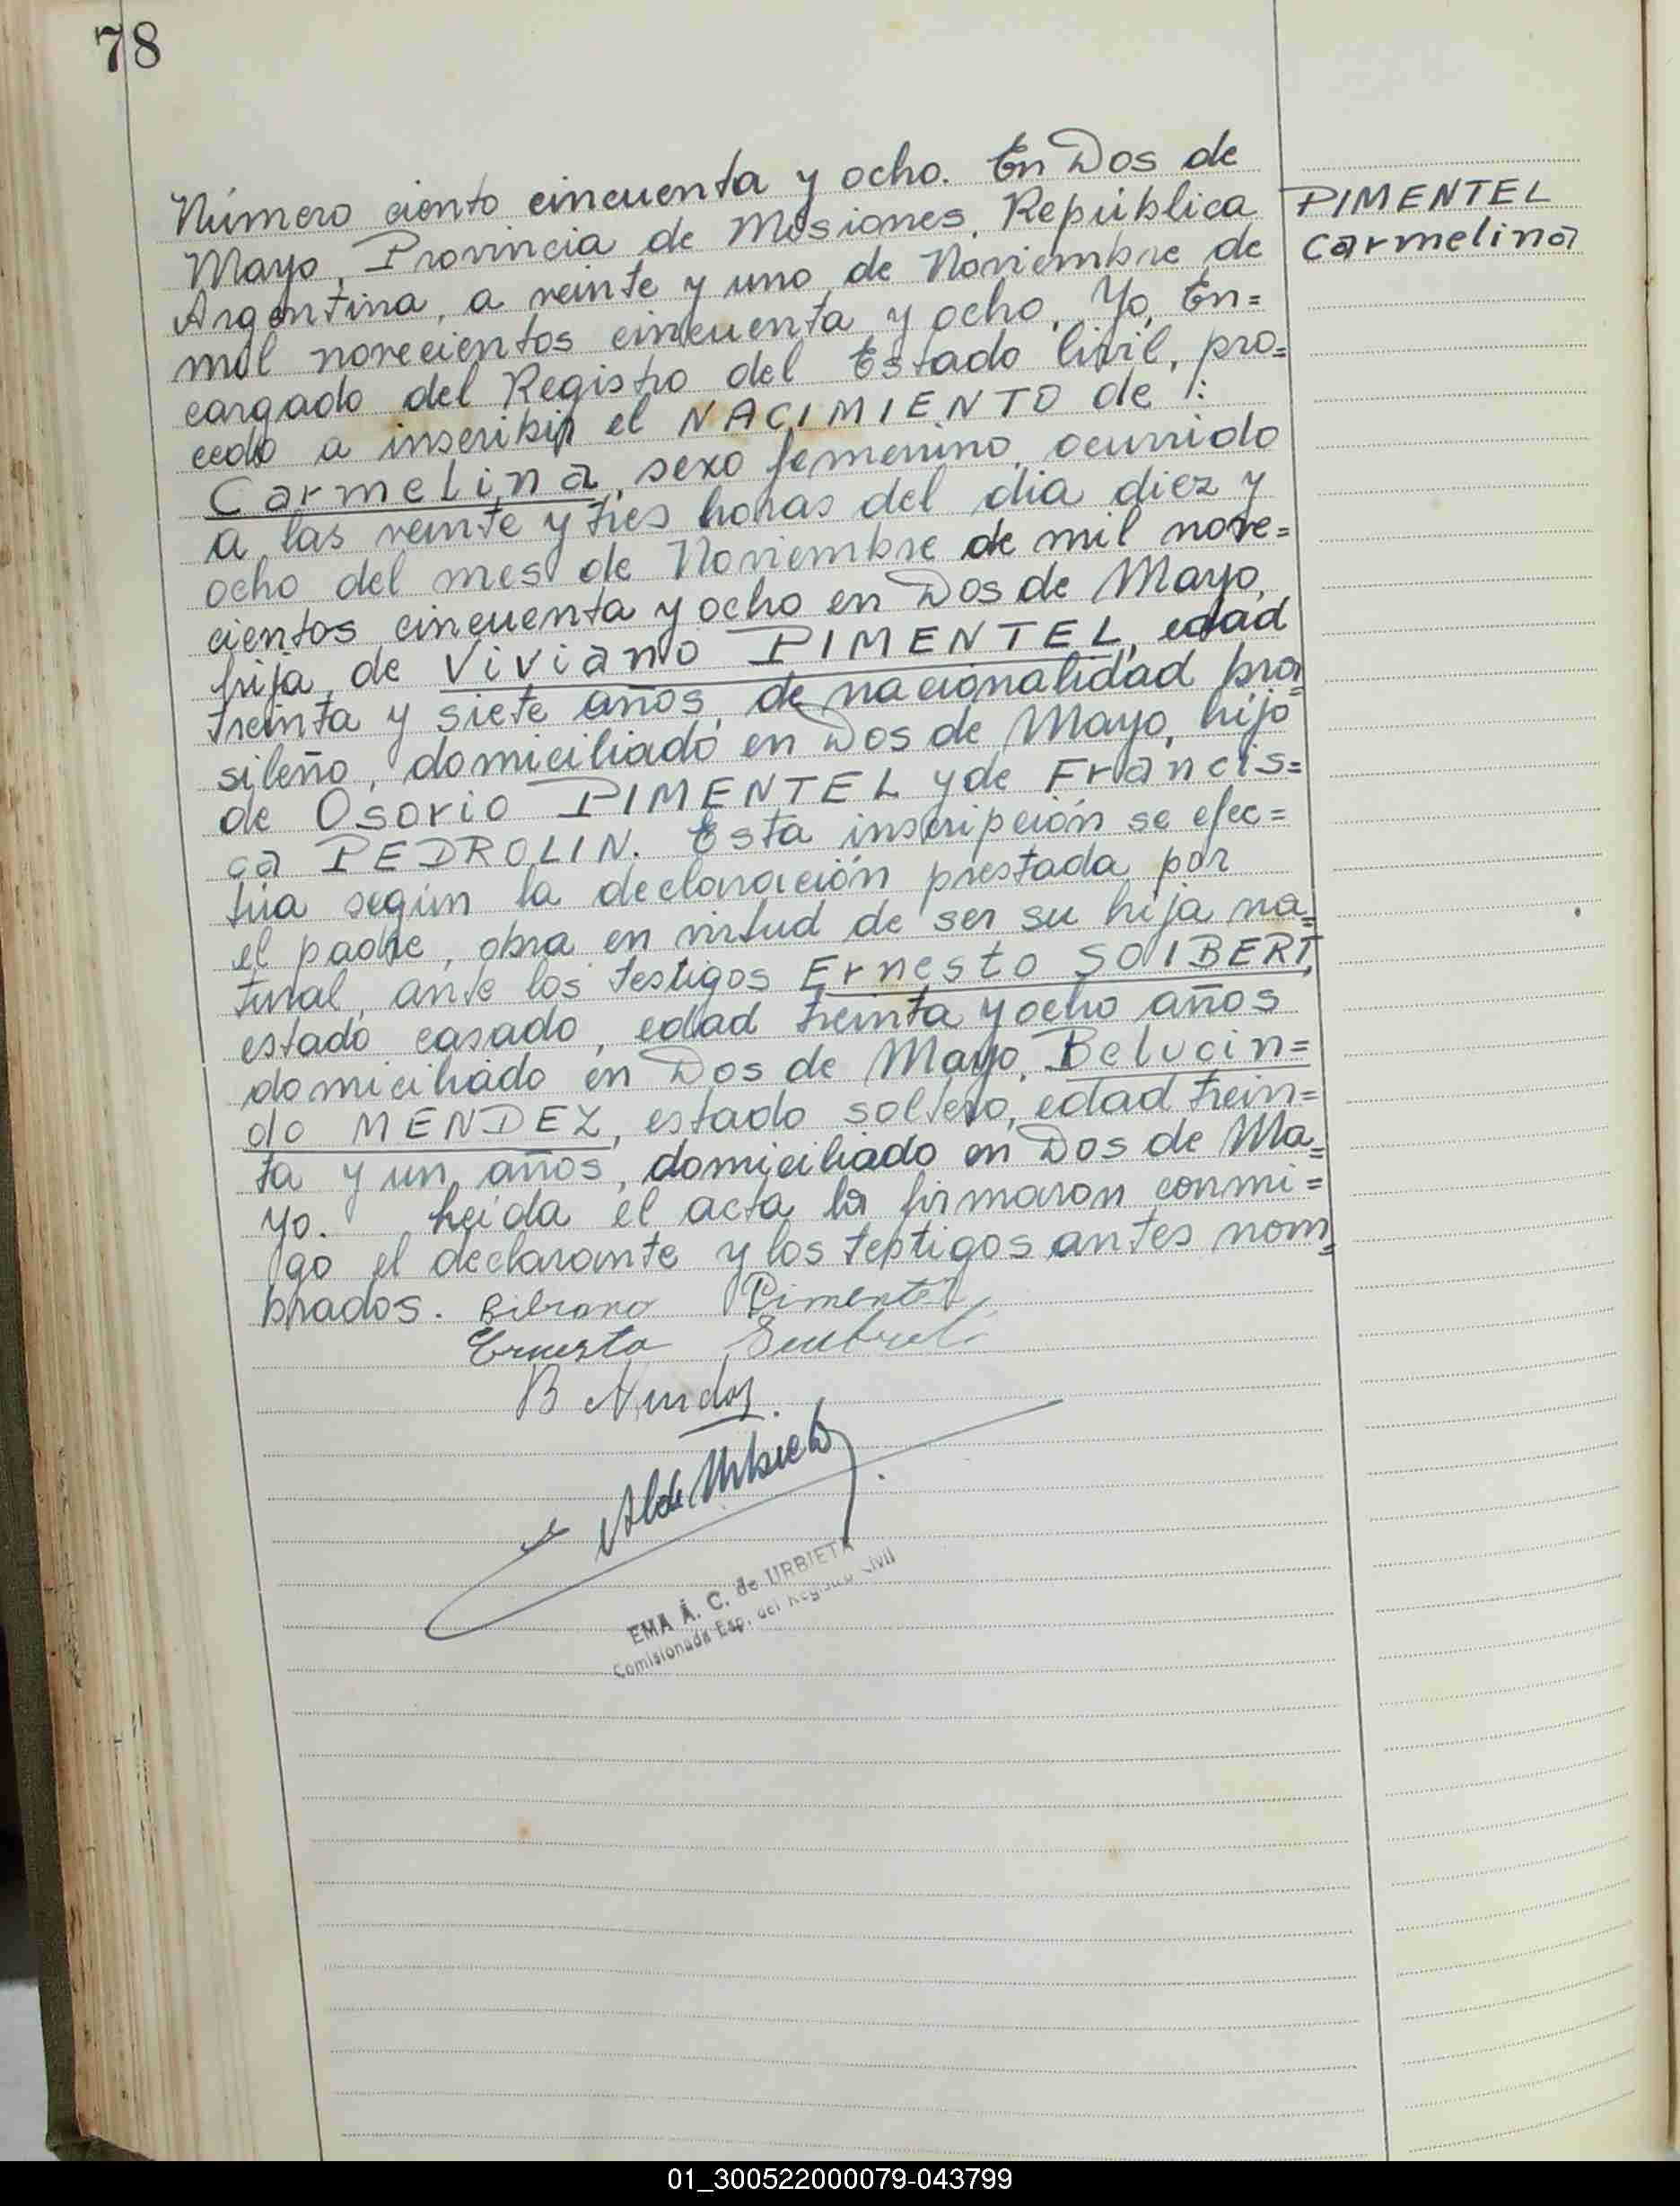 78
Número ciento cincuenta y ocho. En Dos de
Mayo, Provincia de Misiones, República
Argentina, a veinte y uno de Noviembre de
mil novecientos cincuenta y ocho, Yo, En=
cargado del Registro del Estado Civil, pro=
cedo a inscribir el NACIMIENTO de 1:
Carmelina, sexo femenino, ocurrido
a las veinte y tres horas del dia diez y
ocho del mes de Noviembre de mil nove=
cientos cincuenta y ocho en Dos de Mayo,
hija de Viviano PIMENTEL, edad
treinta y siete años, de nacionalidad bra=
sileño, domiciliado en Dos de Mayo, hijo
de Osorio PIMENTEL y de Francis=
ca PEDROLIN. Esta inscripción se efec=
túa según la declaración prestada por
el padre, obra en virtud de ser su hija na=
tural, ante los testigos Ernesto SOIBERT,
estado casado, edad treinta y ocho años
domiciliado en Dos de Mayo, Belucin=
do MENDEZ, estado soltero, edad trein=
ta y un años, domiciliado en Dos de Ma=
yo. Leída el acta la firmaron conmi=
go el declarante y los testigos antes nom=
brados. Pimentel
Ernesto
B
EMA A. C. de URBIETA
Comisionada Esp. del Registro Civil
PIMENTEL
Carmelina
01_300522000079-043799